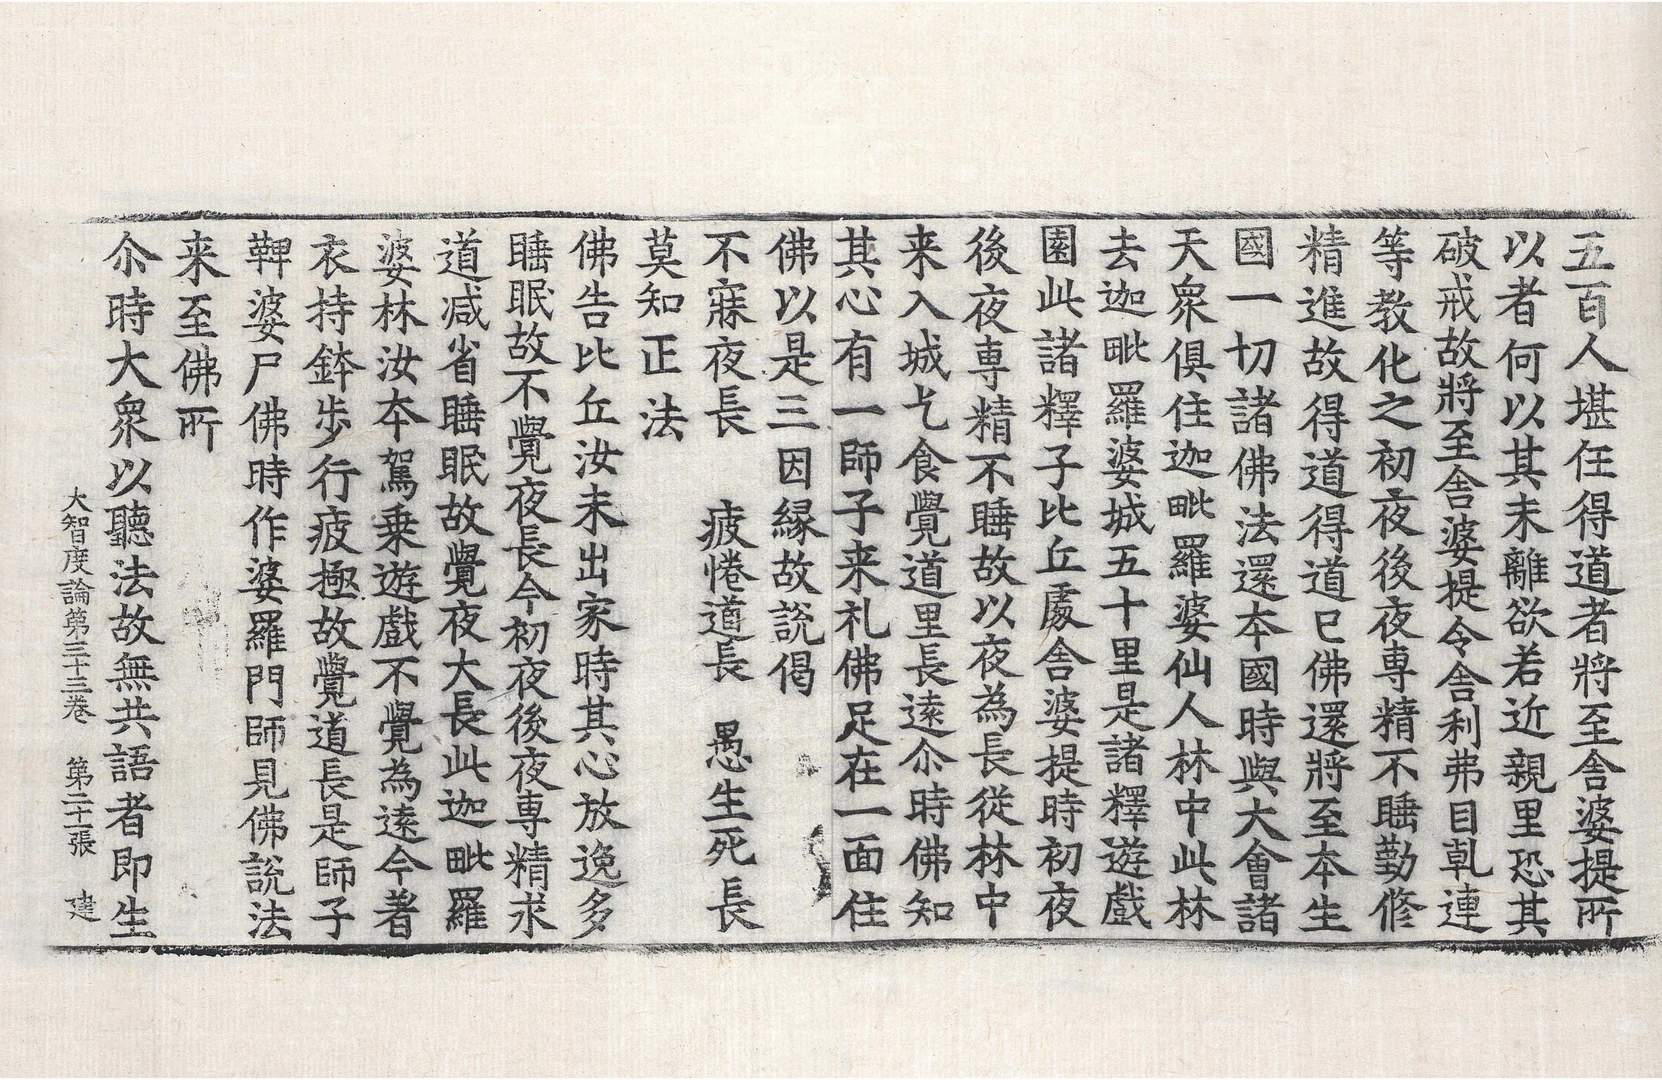 五百人堪任得道者將至舍婆提所
以者何以其未離欲若近親里恐其
破戒故將至舍婆提令舍利弗目乹連
等教化之初夜後夜専精不睡勤修
精進故得道得道已佛還將至本生
國一切諸佛法還夲國時與大會諸
天衆俱住迦毗羅婆仙人林中此林
去迦毗羅婆城五十里是諸釋遊戲
園此諸釋子比丘處舍婆提時初夜
後夜専精不睡故以夜為長從林中
来入城乞食覺道里長逺尒時佛知
其心有一師子来礼佛足在一面住
佛以是三因縁故說偈
不寐夜長　疲惓道長　愚生死長
莫知正法
佛告比丘汝未出家時其心放逸多
睡眠故不覺夜長今初夜後夜専精求
道减省睡眠故覺夜大長此迦毗羅
婆林汝夲駕乗遊戲不覺為逺今著
衣持鉢步行疲極故覺道長是師子
鞞婆尸佛時作婆羅門師見佛說法
来至佛所
尒時大衆以聽法故無共語者即生
大智度論第三十三卷　第二十一張　建